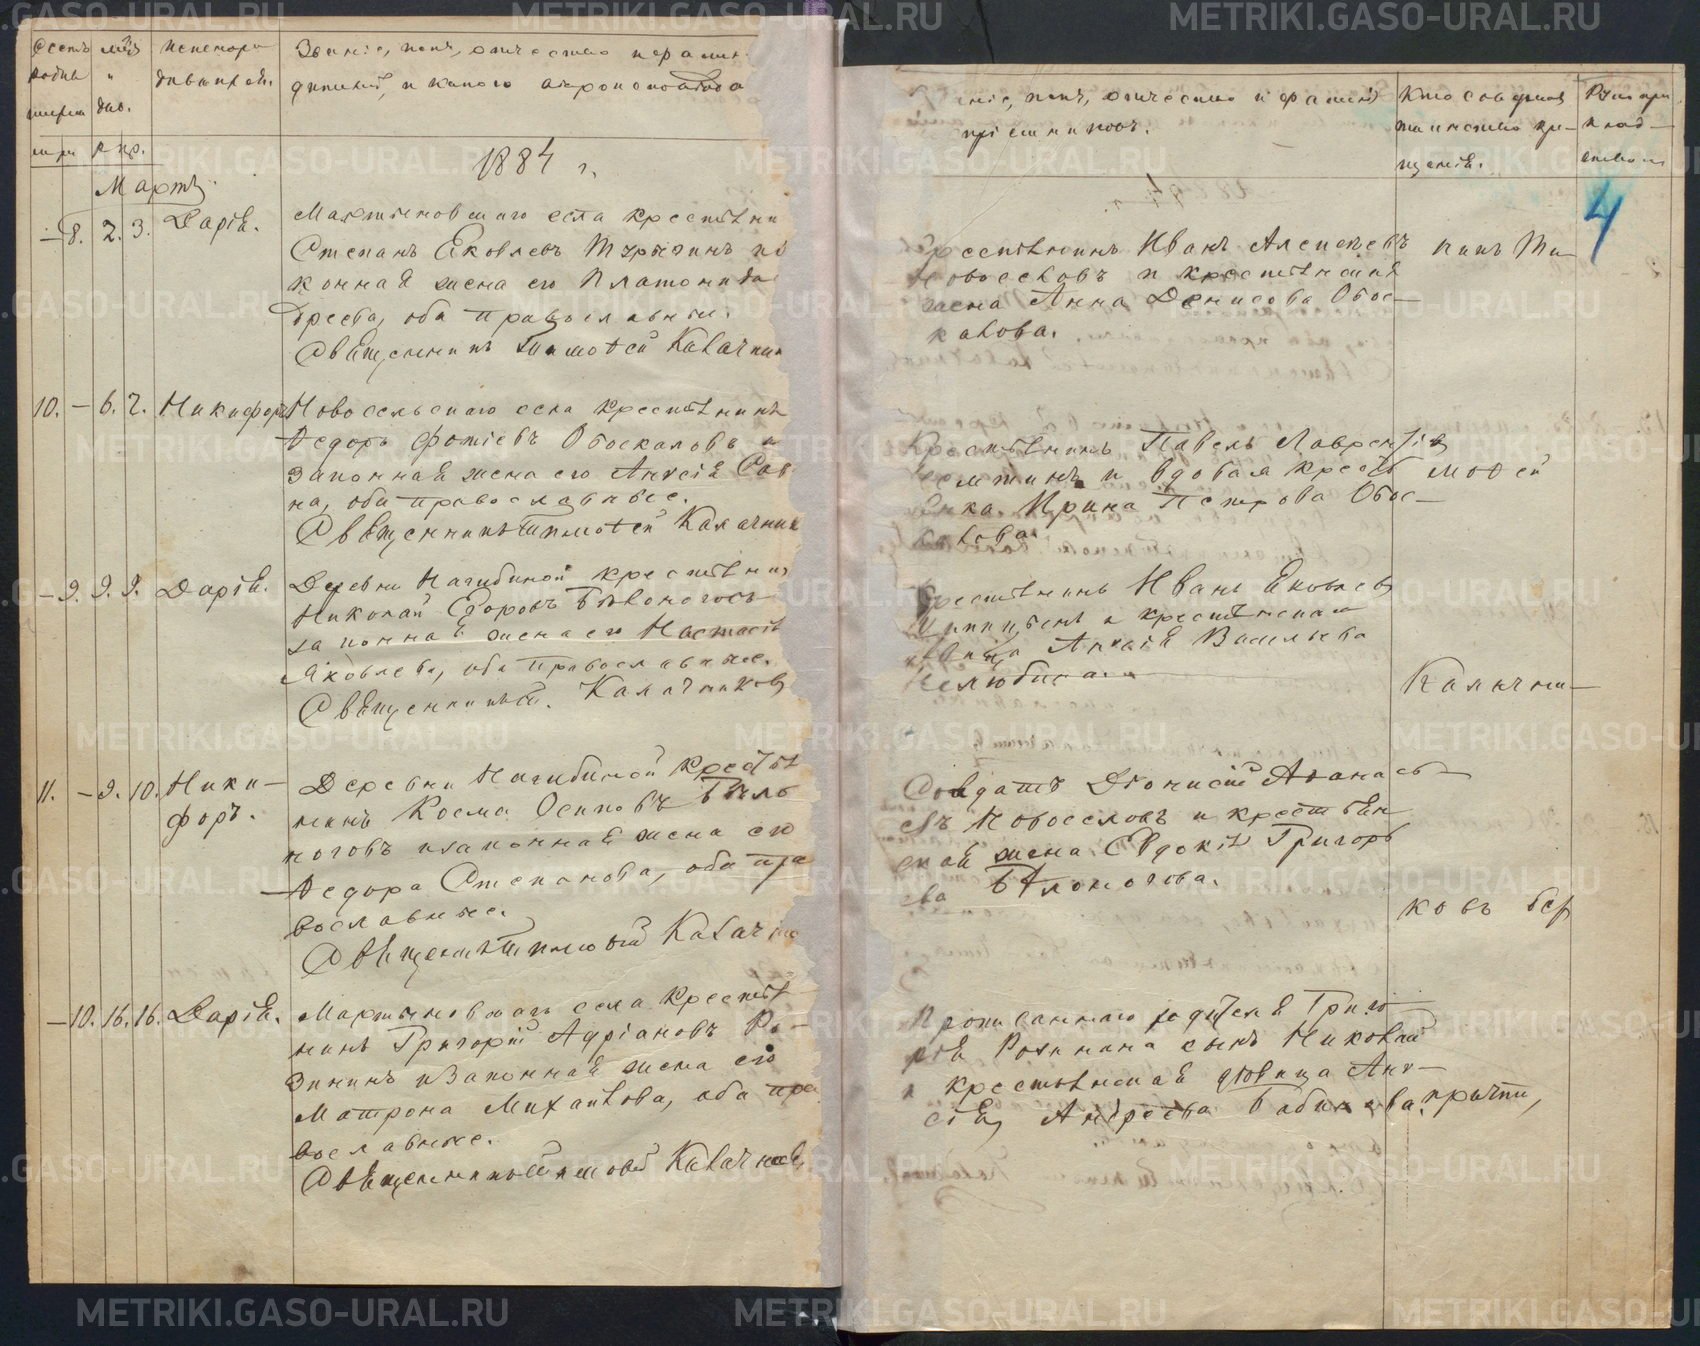 Счетъ родив
мѣц и дн.
Имена ро
дившихся.
Званіе, имя, отчество и фамил.
родителей, и какого вѣроисповѣда
м. р. р. кр.
1884 г.
Мартъ.
— 8. 2. 3. Дарія.
Мартыновскаго села крестьяни
Степанъ Яковлевъ Турыгинъ и за
конная жена его Платонида
оба православные.
Священникъ Тимофей Калачник
10. — 6. 7. Никифоръ
Новосельскаго села крестьянинъ
Федоръ Фотіевъ Обоскаловъ и
законная жена его Анисія Сав
на, оба православные.
Священникъ Тимофей Калачник
— 9. 9. 9. Дарія.
Деревни Нагибиной крестьянин
Николай Егоровъ Бѣлоноговъ
законная жена его Настасія
Яковлева, оба православные.
Священникъ Т. Калачников
11. — 9. 10. Ники—
форъ.
Деревни Нагибиной крестья
нинъ Косма Осиповъ Бѣло
ноговъ и законная жена его
Федора Степанова, оба пра
вославные.
Священникъ Тимофей Калачни
— 10. 16. 16. Дарія.
Мартыновскаго села крестья
нинъ Григорій Адріановъ Ро—
зининъ и законная жена его
Матрона Михаилова, оба пра
вославные.
Священникъ Тимофей Калачников
Званіе, имя, отчество и фамилія
пріемниковъ.
Кто совершалъ
таинство кре—
щенія.
Рукопри
клад—
ство
4
Крестьянинъ Иванъ Алексѣевъ
Новоселовъ и крестьянская
жена Анна Денисова Обос—
калова.
никъ Ти—
Крестьянинъ Павелъ Лаврентіев
и вдовая кресть
янка Ирина Петрова Обос—
калова.
мофей
Крестьянинъ Иванъ Яковлев
и крестьянская
дѣвица Анисія Васильева
Нелюбина.
Калачни—
Солдатъ Діонисій Афанась—
евъ Новоселовъ и крестьян
ская жена Евдокія Григорь
ева Бѣлоногова.
ковъ
Прописаннаго родителя Григо
рія Розинина сынъ Николай
и крестьянская дѣвица Ани—
сія Андреева Бабинова.
причти,
METRIKI.GASO-URAL.RU